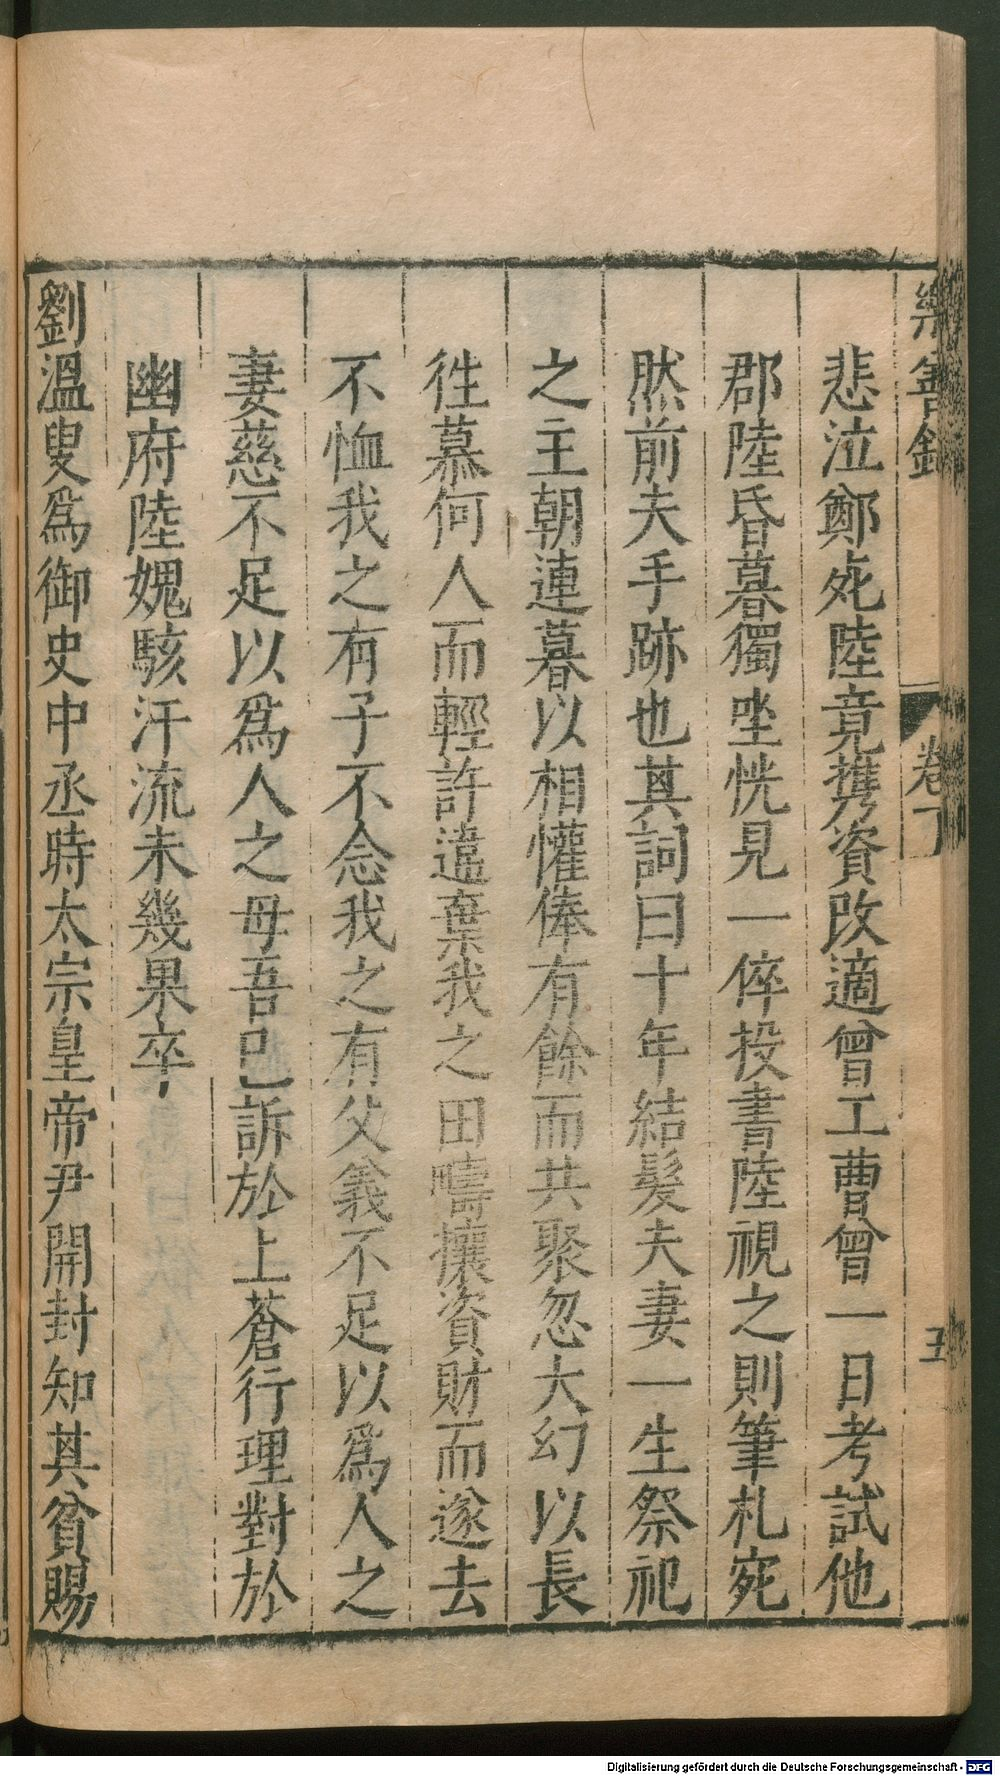 樂善錄 卷下 五
悲泣鄭死陸竟攜資改適曾工曹曾一日考試他
郡陸昏暮獨坐恍見一倅投書陸視之則筆札宛
然前夫手跡也其詞曰十年結髮夫妻一生祭祀
之主朝連暮以相懽俸有餘而共聚忽大幻以長
徃慕何人而輕許違棄我之田疇攘資財而遂去
不恤我之有子不念我之有父義不足以爲人之
妻慈不足以爲人之母吾已訴於上蒼行理對於
幽府陸媿駭汗流未幾果卒
劉溫叟爲御史中丞時太宗皇帝尹開封知其貧賜
Digitalisierung gefördert durch die Deutsche Forschungsgemeinschaft - DFG